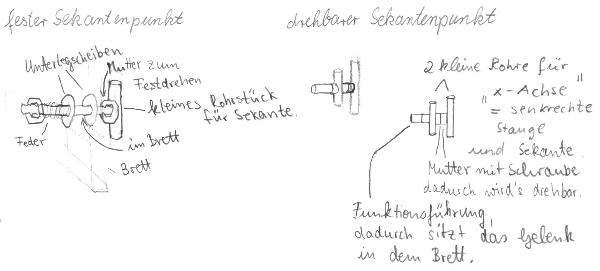 fester Sekantenpunkt
Unterlegscheiben
Mutter zum
Festdrehen
kleines Rohrstück
für Sekante.
Feder
im Brett
Brett
drehbarer Sekantenpunkt
2 kleine Rohre für
"x-Achse"
= senkrechte
Stange
und Sekante.
Mutter mit Schraube
dadurch wird's drehbar.
Funktionsführung,
dadurch sitzt das Gelenk
in dem Brett.